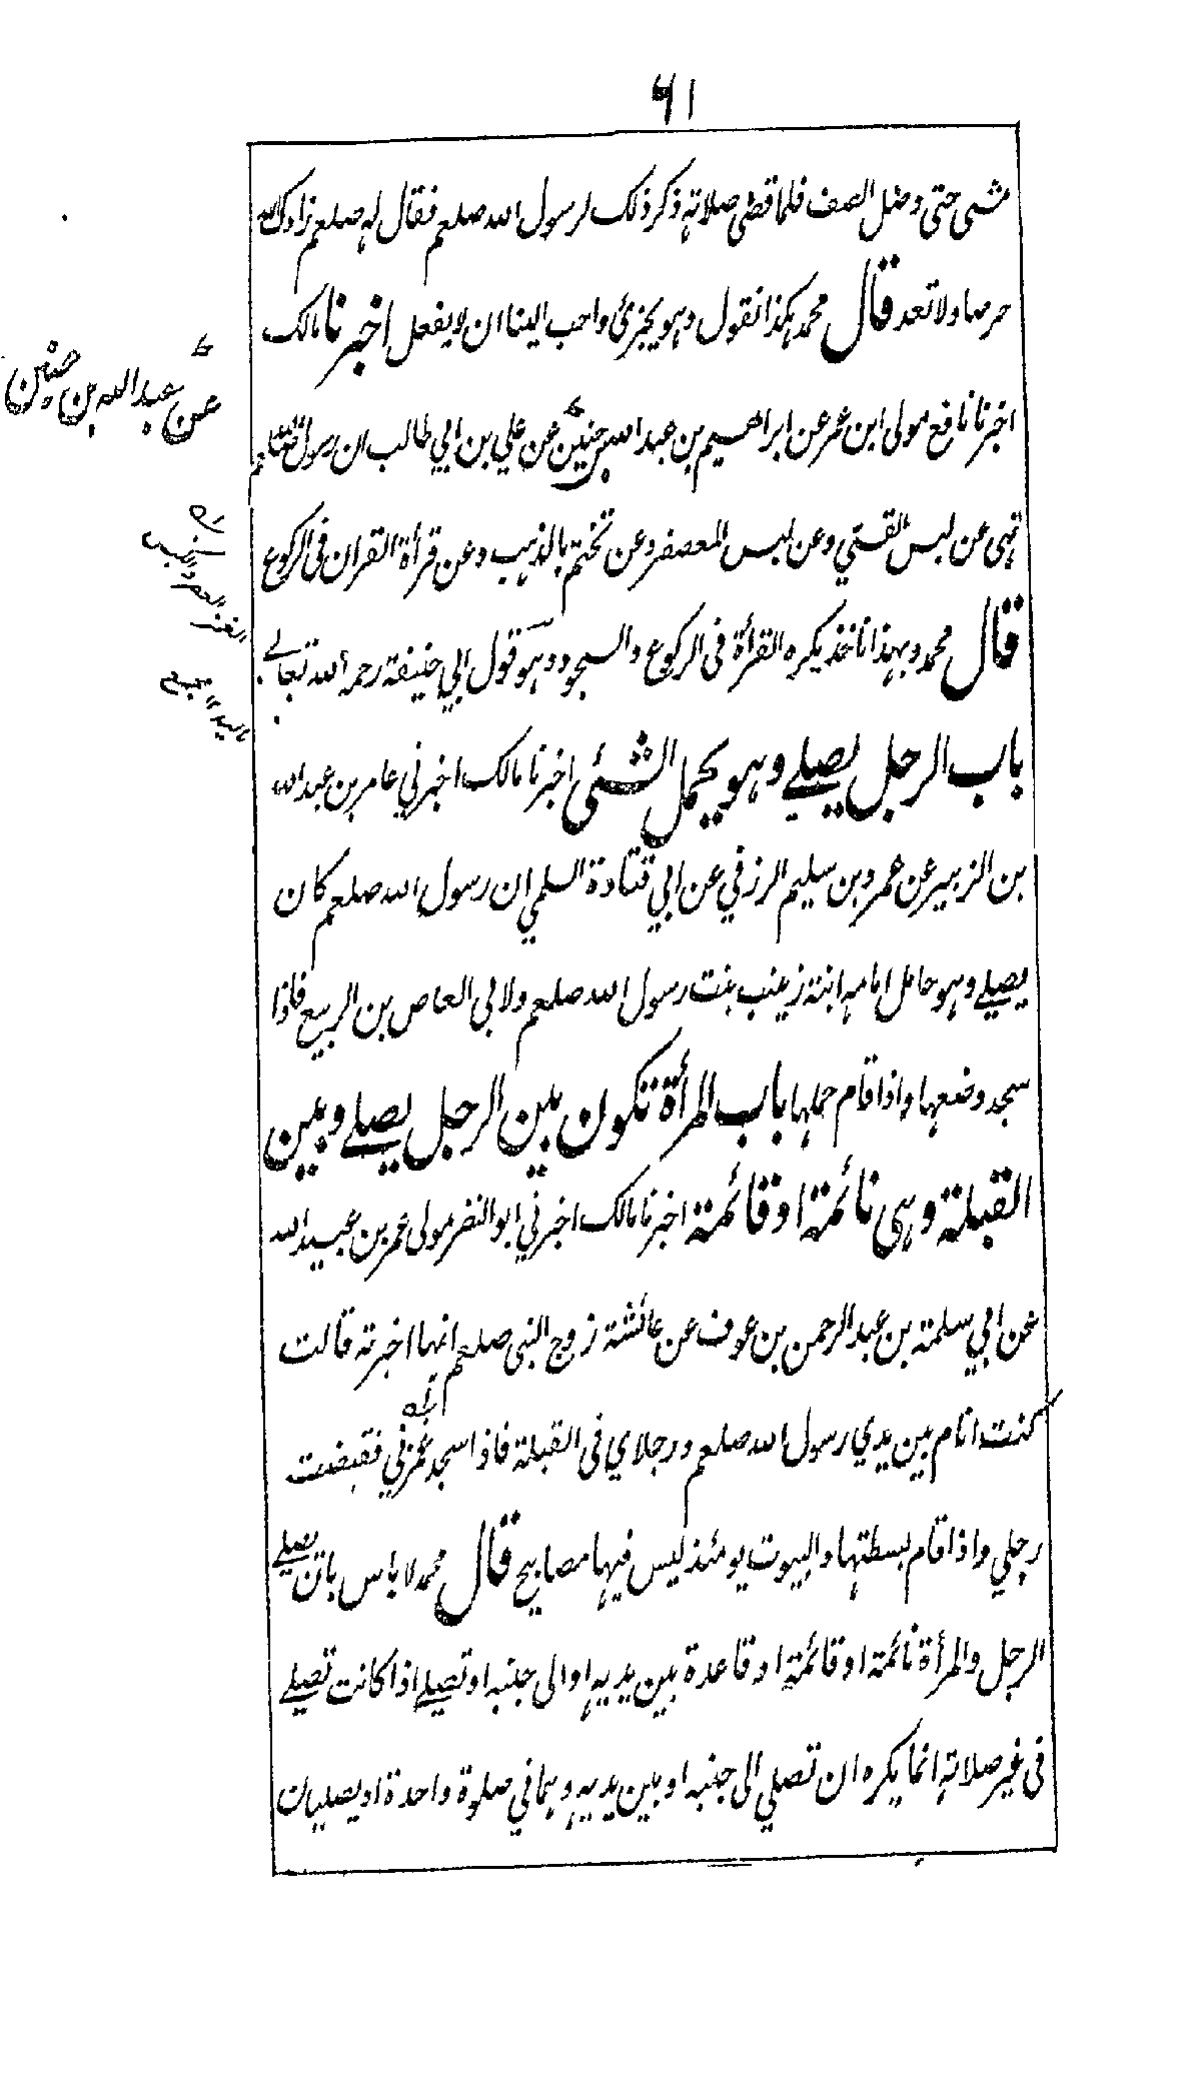 ۶۱
مشى حتى وصل الصف فلما قضى صلاته ذكر ذلك لرسول الله صلعم فقال له صلعم زادك الله
حرصا ولا تعد قال محمد هكذا نقول وهو يجزئ واحب الينا ان لا يفعل اخبرنا مالك
اخبرنا نافع مولى ابن عمر عن ابراهيم بن عبد الله بن حنين عن علي بن ابي طالب ان رسول الله صلعم
عن عبد الله بن حنين
نهى عن لبس القسي وعن لبس المعصفر وعن تختم بالذهب وعن قرأة القران فى الركوع
قال محمد وبهذا ناخذ يكره القرأة فى الركوع والسجود وهو قول ابي حنيفة رحمه الله تعالے
باب الرجل يصلے وهو يحمل الشئى اخبرنا مالك اخبرني عامر بن عبد الله
بن الزبير عن عمرو بن سليم الزرقي عن ابي قتادة السلمي ان رسول الله صلعم كان
يصلے وهو حامل امامه ابنة زينب بنت رسول الله صلعم ولابي العاص بن الربيع فاذا
سجد وضعها واذا قام حملها باب المرأة تكون بين الرجل يصلے وبين
القبلة وهى نائمة او قائمة اخبرنا مالك اخبرني ابو النضر مولى عمر بن عبيد الله
عن ابي سلمة بن عبد الرحمن بن عوف عن عائشة زوج النبى صلعم انها اخبرته قالت
كنت انام بين يدي رسول الله صلعم ورجلاي فى القبلة فاذا سجد غمزني فقبضت
رجلي واذا قام بسطتها والبيوت يومئذ ليس فيها مصابيح قال محمد لا باس بان يصلے
الرجل والمرأة نائمة او قائمة او قاعدة بين يديه او الى جنبه او تصلے اذا كانت تصلے
فى غير صلاته انما يكره ان تصلي الى جنبه او بين يديه وهما في صلوة واحدة او يصليان